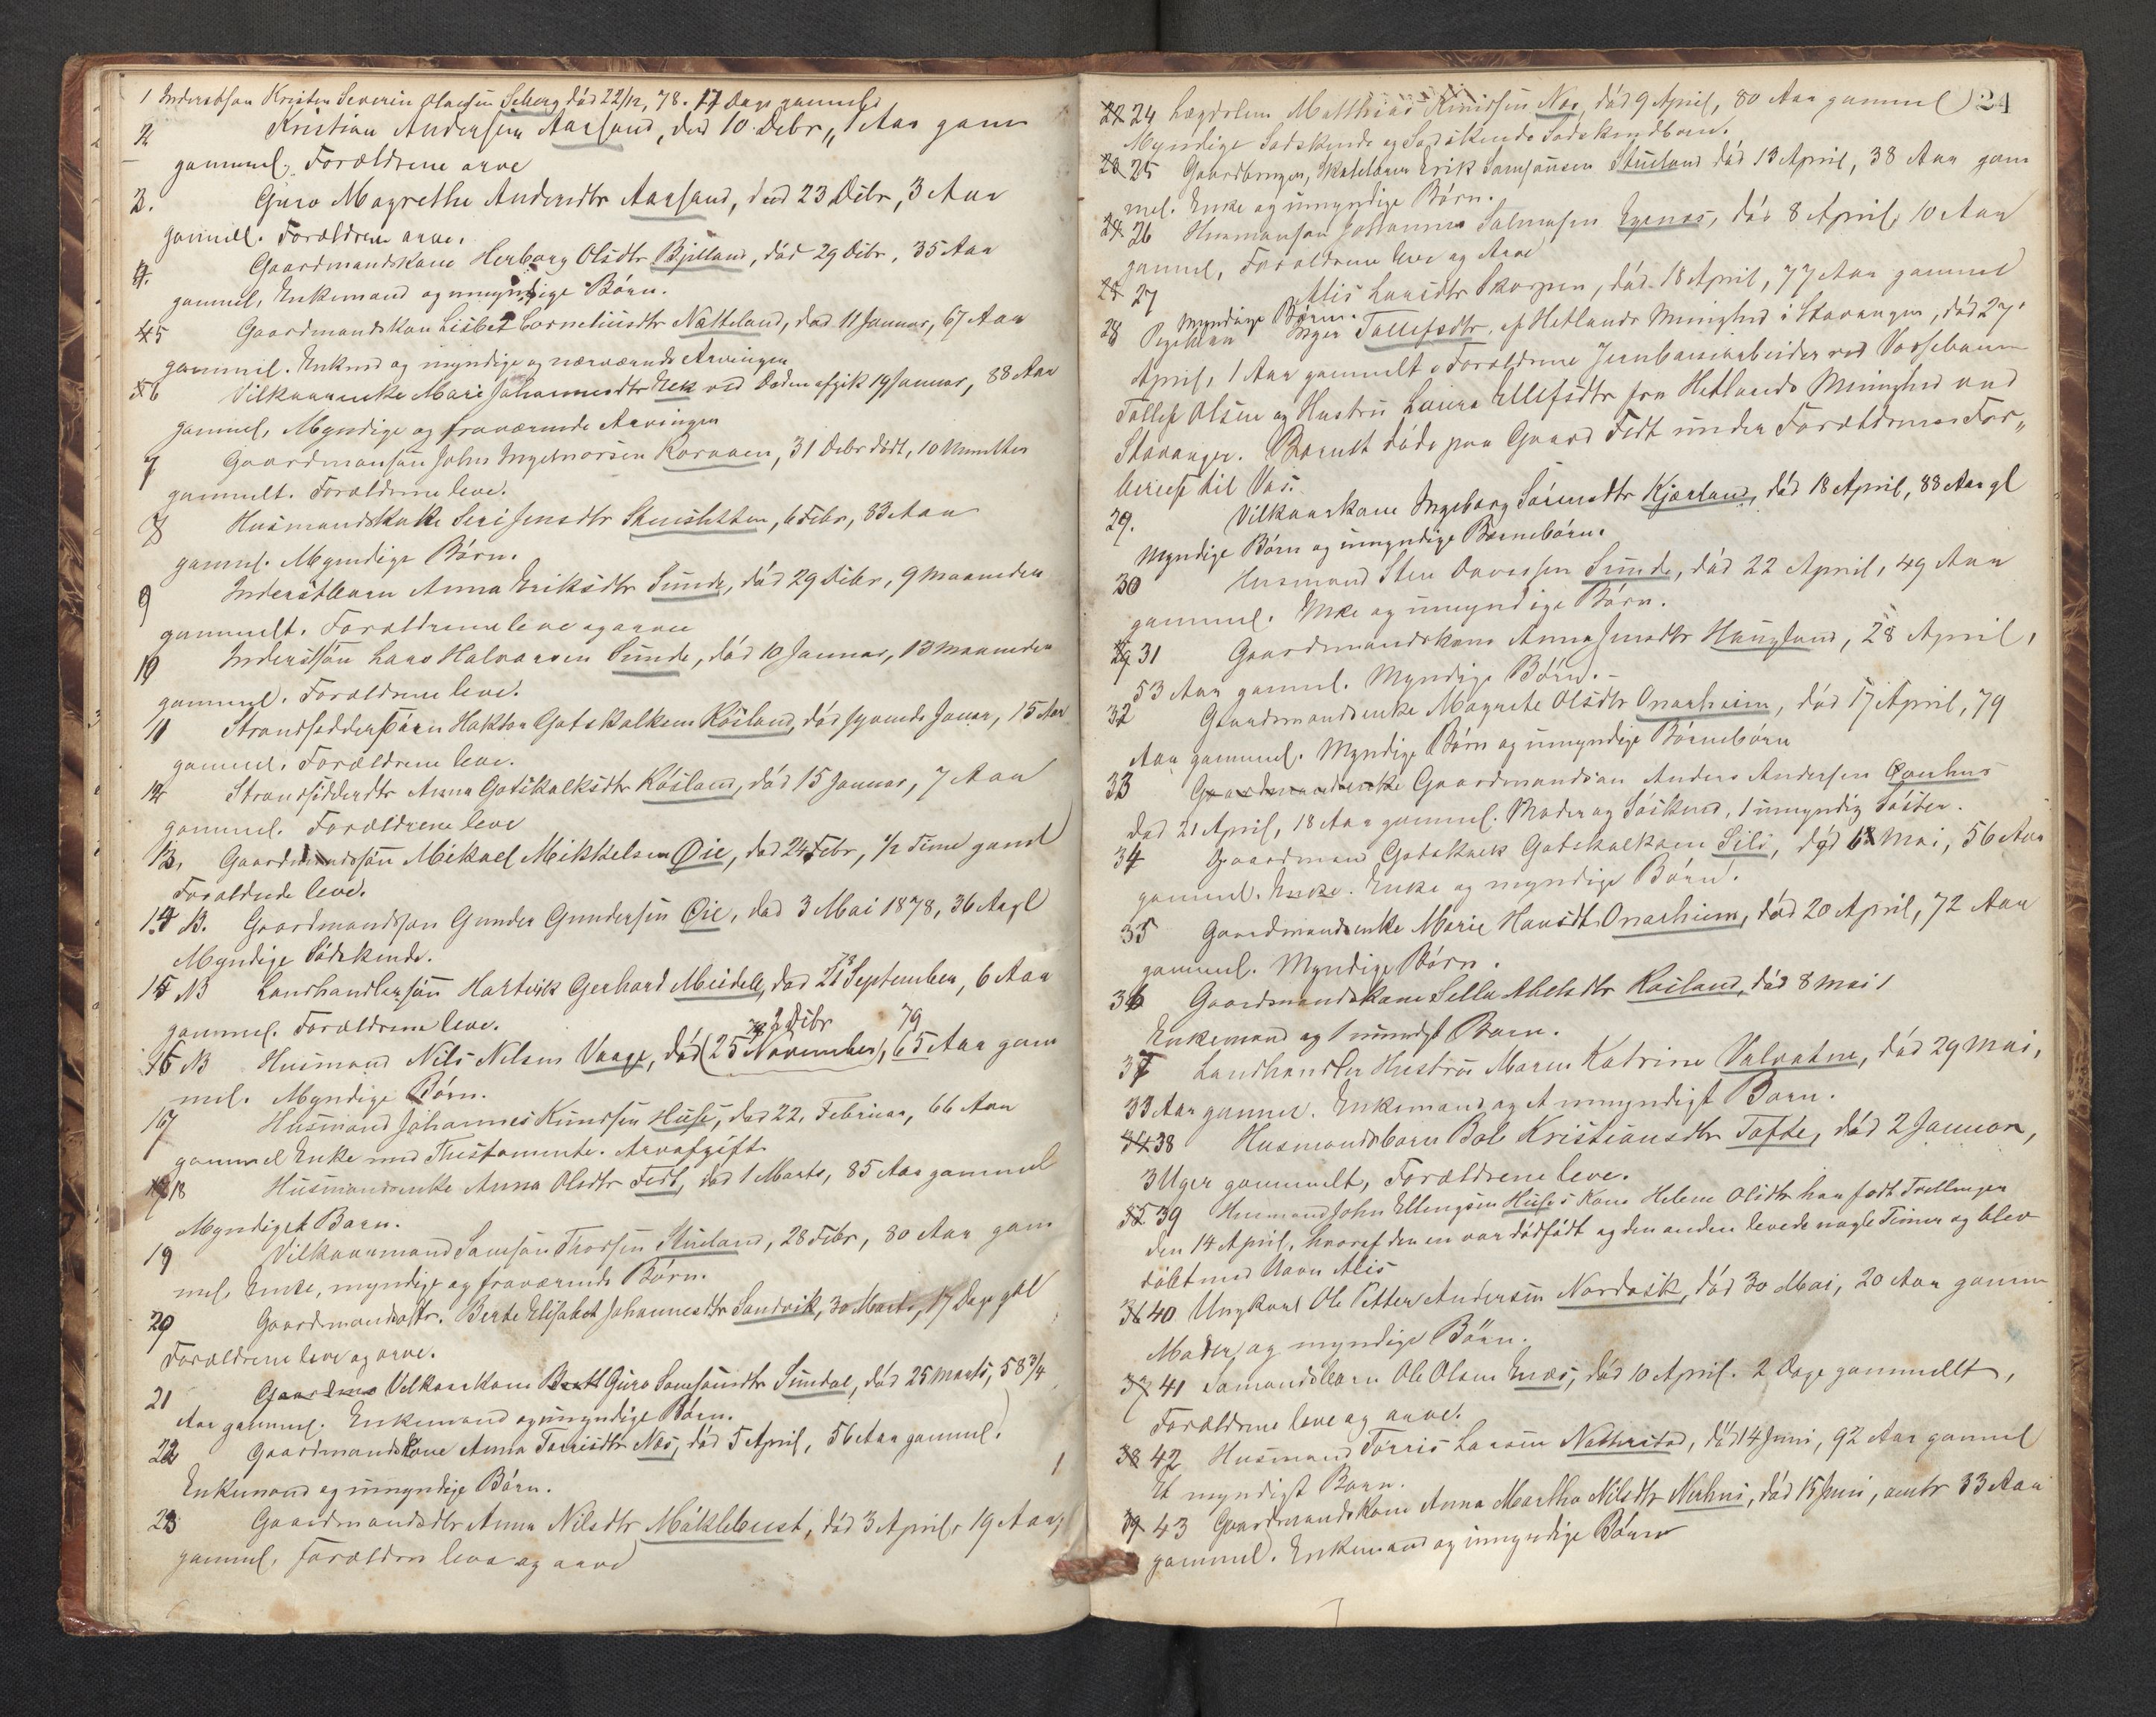 1 Inderstsøn Kristen Severin Olaisen Seberg død 22/12, 78. 17 Dage gammel
2 Kristian Andersen Aarsand, død 10 Debr, 1 Aar gam
gammel. Forældrene arve
3. Guro Magrethe Andersdtr Aarsand, død 23 Debr, 3 Aar
gammel. Forældrene arve.
4. Gaardmandskone Herborg Olsdtr Bjelland, død 29 Debr, 35 Aar
gammel, Enkemand og umyndige Børn.
5 Gaardmandskone Lisbet Corneliusdtr Nætteland, død 11 Januar, 67 Aar
gammel. Enkmd og myndige og nærværende Arvinger
6 Vilkaarsenke Mari Johannesdtr Eek ved Døden afgik 19 Januar, 88 Aar
gammel, Myndige og fraværende Arvinger
7 Gaardmandsøn John Ingebrorsen Korsaen, 31 Debr født, 10 Minutter
gammelt. Forældrene leve.
8 Husmandskone Seri Jensdtr Skeisletten, 6 Febr, 83 Aar
gammel. Myndige Børn.
9 Inderstbarn Anna Eriksdtr Sunde, død 29 Debr, 9 Maaneder
gammelt. Forældrene leve og arve
10 Inderstsøn Lars Halvorsen Sunde, død 10 Januar, 13 Maaneder
gammel. Forældrene leve.
11 Strandsidderbarn Haktor Gotskalksen Røsland, død syvende Januar, 15 Aar
gammel. Forældrene leve.
12 Strandsidderdtr Anna Gotskalksdtr Røsland, død 15 Januar, 7 Aar
gammel. Forældrene leve
13. Gaardmandssøn Mikael Mikkelsen Øie, død 24 Febr, 1/2 Time gaml
Forældrede leve.
14 B. Gaardmandssøn Gunder Gundersen Øie, død 3 Mai 1878, 36 Aar gl
Myndige Sødskende.
15 N3 Landhandlersøn Hartvik Gerhard Meidell, død 21 September, 6 Aar
gammel. Forældrene leve.
2 Debr 79
16 N3 Husmand Nils Nilsen Vaage, død (25 November), 65 Aar gam
mel. Myndige Børn.
17 Husmand Johannes Knudsen Huse, død 22. Februar, 66 Aar
gammel Enke med Thestamente. Arveafgift
18 Husmandsenke Anna Olsdtr Fedt, død 1 Marts, 85 Aar gammel
Myndigt Barn.
19 Vilkaarmand Samson Thorsen Stueland, 28 Febr, 80 Aar gam
mel. Enke, myndige og fraværende Børn.
20 Gaardmandsdtr. Berte Elisabet Johannesdtr Sandvik, 30 Marts, 17 Dage gbl
Forældrene leve og arve.
21 Gaardma Velkaarkone Guro Samsonsdtr Sundal, død 25 Marts, 58 3/4
Aar gammel. Enkemand og umyndige Børn.
22 Gaardmandskone Anna Torrisdtr Nes, død 5 April, 56 Aar gammel.
Enkemand og umyndige Børn.
23 Gaardmandsdtr Anna Nilsdtr Mæklebust, død 3 April, 19 Aar
gammel, Forældre leve og arve
24
22 24 Lægdslem Matthias Knudsen Nes, død 9 April, 80 Aar gammel
Myndige Sødskende og Sødskende Sødskendbørn.
23 25 Gaardbruger, Skolelærer Erik Samsonsen Stueland død 13 April, 38 Aar gam
mel. Enke og umyndige Børn.
24 26 Husmandsøn Johannes Salmosen Egenes, død 8 April, 10 Aar
gammel, Forældrene leve og Arve
25 27 Alis Larsdtr Skorpen, død 18 April, 77 Aar gammel
Myndige Børn.
28 Pigebarn Inger Tollefsdtr, af Hetlands Menighed i Stavanger, død 27
April, 1 Aar gammelt. Forældrene Jernbanearbeider ved Vossebanen
Tollef Olsen og Hustru Laura Ellefsdtr fra Hetlands Menighed ved
Stavanger. Barnet døde paa Gaard Fedt under Forældrenes For„
bireise til Vos.
29. Vilkaarkone Ingeborg Sørensdtr Kjærland, død 18 April, 88 Aar gl
Myndige Børn og umyndige Børnebørn.
30 Husmand Sten Davidsen Sunde, død 22 April, 49 Aar
gammel. Enke og umyndige Børn.
29 31 Gaardmandskone Anna Jensdtr Haugland, 28 April,
53 Aar gammel. Myndige Børn.
32 Gaardmandsenke Magrete Olsdtr Onarheim, død 17 April, 79
Aar gammel. Myndige Børn og umyndige Børnebørn
33 Gaardmandsenke Gaardmandsøn Anders Andersen Openhus
død 21 April, 18 Aar gammel. Moder og Søskend, 1 umyndig Søster.
34 Gaardmand Gotskalk Gotskalksen Seli, død 12 Mai, 56 Aar
gammel. Enke. Enke og myndige Børn.
35 Gaardmandsenke Marie Hansdt Onarheim, død 20 April, 72 Aar
gammel. Myndige Børn.
36 Gaardmandskone Sella Abelsdtr Røsland, død 8 Mai
Enkemand og 1 umndigt Barn.
37 Landhandler Hustru Maren Katrine Valvatne, død 29 Mai,
33 Aar gammel. Enkemand og et umyndigt Barn.
34 38 Husmandsbarn Bol Kristiansdtr Tofte, død 2 Januar,
3 Uger gammelt, Forældrene leve.
35 39 Husmand John Ellingsen Huses Kone Helene Olsdtr har født Tvillinger
den 14 April, hvoraf den en var dødfødt og den anden levede nogle Timer og blev
døbt med Navn Alis
36 40 Ungkarl Ole Petter Andersen Nordvik, død 30 Mai, 20 Aar gamm
Moder og myndige Børn.
37 41 Sømandsbarn Ole Olsen Enæs, død 10 April. 2 Dage gammelt,
Forældrene leve og arve.
38 42 Husmand Torris Larsen Netterstad, død 14 Juni, 92 Aar gammel
Et myndigt Barn.
39 43 Gaardmandskone Anna Martha Nilsdtr Nerhus, død 15 Juni, omtr 33 Aar
gammel. Enkemand og umyndige Børn